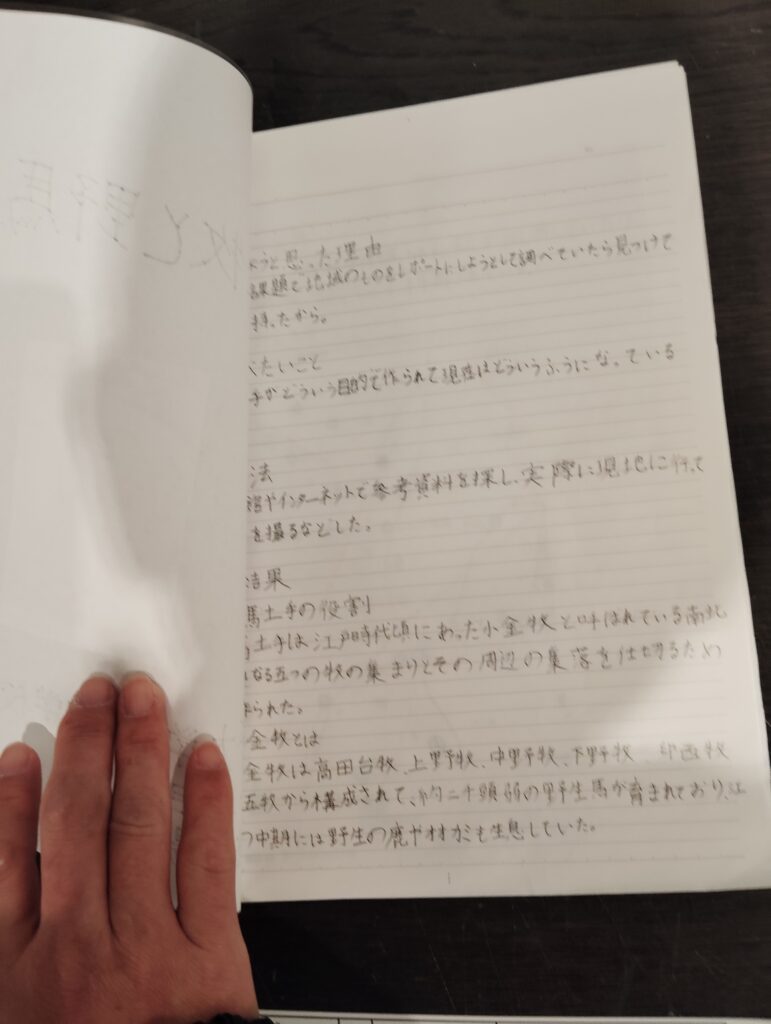 牧と野馬
ようと思った理由
課題で地域のものをレポートにしようとして調べていたら見つけて
持ったから。
べたいこと
手がどういう目的で作られて現在はどういうふうになっている
法
館やインターネットで参考資料を探し、実際に現地に行って
を撮るなどした。
結果
馬土手の役割
馬土手は江戸時代頃にあった小金牧と呼ばれている南北
なる五つの牧の集まりとその周辺の集落を仕切るため
作られた。
金牧とは
金牧は高田台牧、上野牧、中野牧、下野牧 印西牧
五牧から構成されて、約二千頭弱の野生馬が育まれており、江
つ中期には野生の鹿やオオカミも生息していた。
1